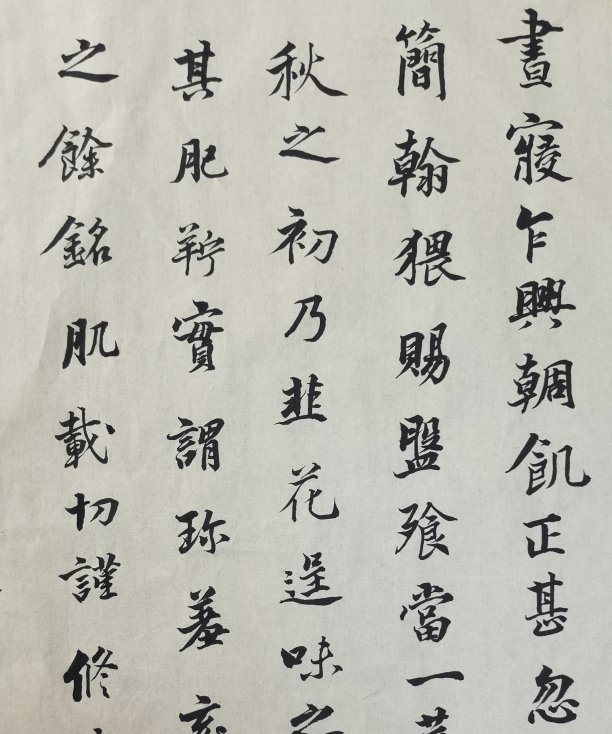 晝寢乍興輖飢正甚忽
簡翰猥賜盤飧當一葉
秋之初乃韭花逞味之
其肥羜實謂珍羞充
之餘銘肌載切謹修